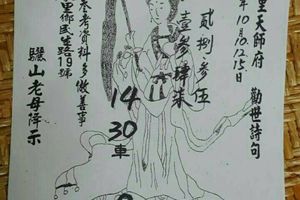 里天師府 勸世詩句
年10月10.12.15日
貳捌參伍
壹參肆柒
14
30
車
參考資料多做善事
里鄉民生路19號
驪山老母降示